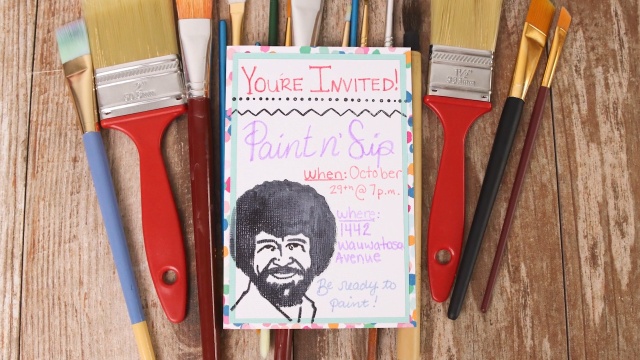 You're Invited!
Paint n' Sip
When: October
29th @ 7p.m.
Where:
1442
Wauwatosa
Avenue
Be ready to
paint!